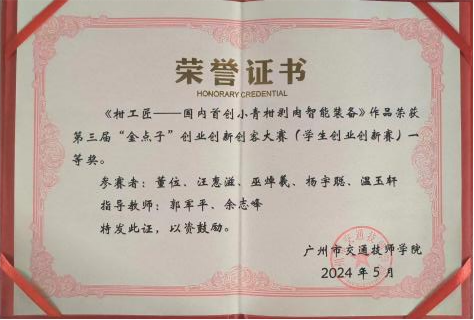 荣誉证书
HONORARY CREDENTIAL
《柑工匠——国内首创小青柑剥肉智能装备》作品荣获
第三届“金点子”创业创新创客大赛（学生创业创新赛）一
等奖。
参赛者：董位、汪惠滋、巫焯羲、杨宇聪、温玉轩
指导教师：郭军平、余志峰
特发此证，以资鼓励。
广州市交通技师学院
2024年5月